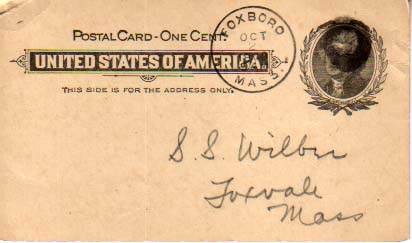 POSTAL CARD - ONE CENT.
UNITED STATES OF AMERICA.
THIS SIDE IS FOR THE ADDRESS ONLY.
FOXBORO
OCT
2
MASS.
S. S. Wilber
Foxvale
Mass